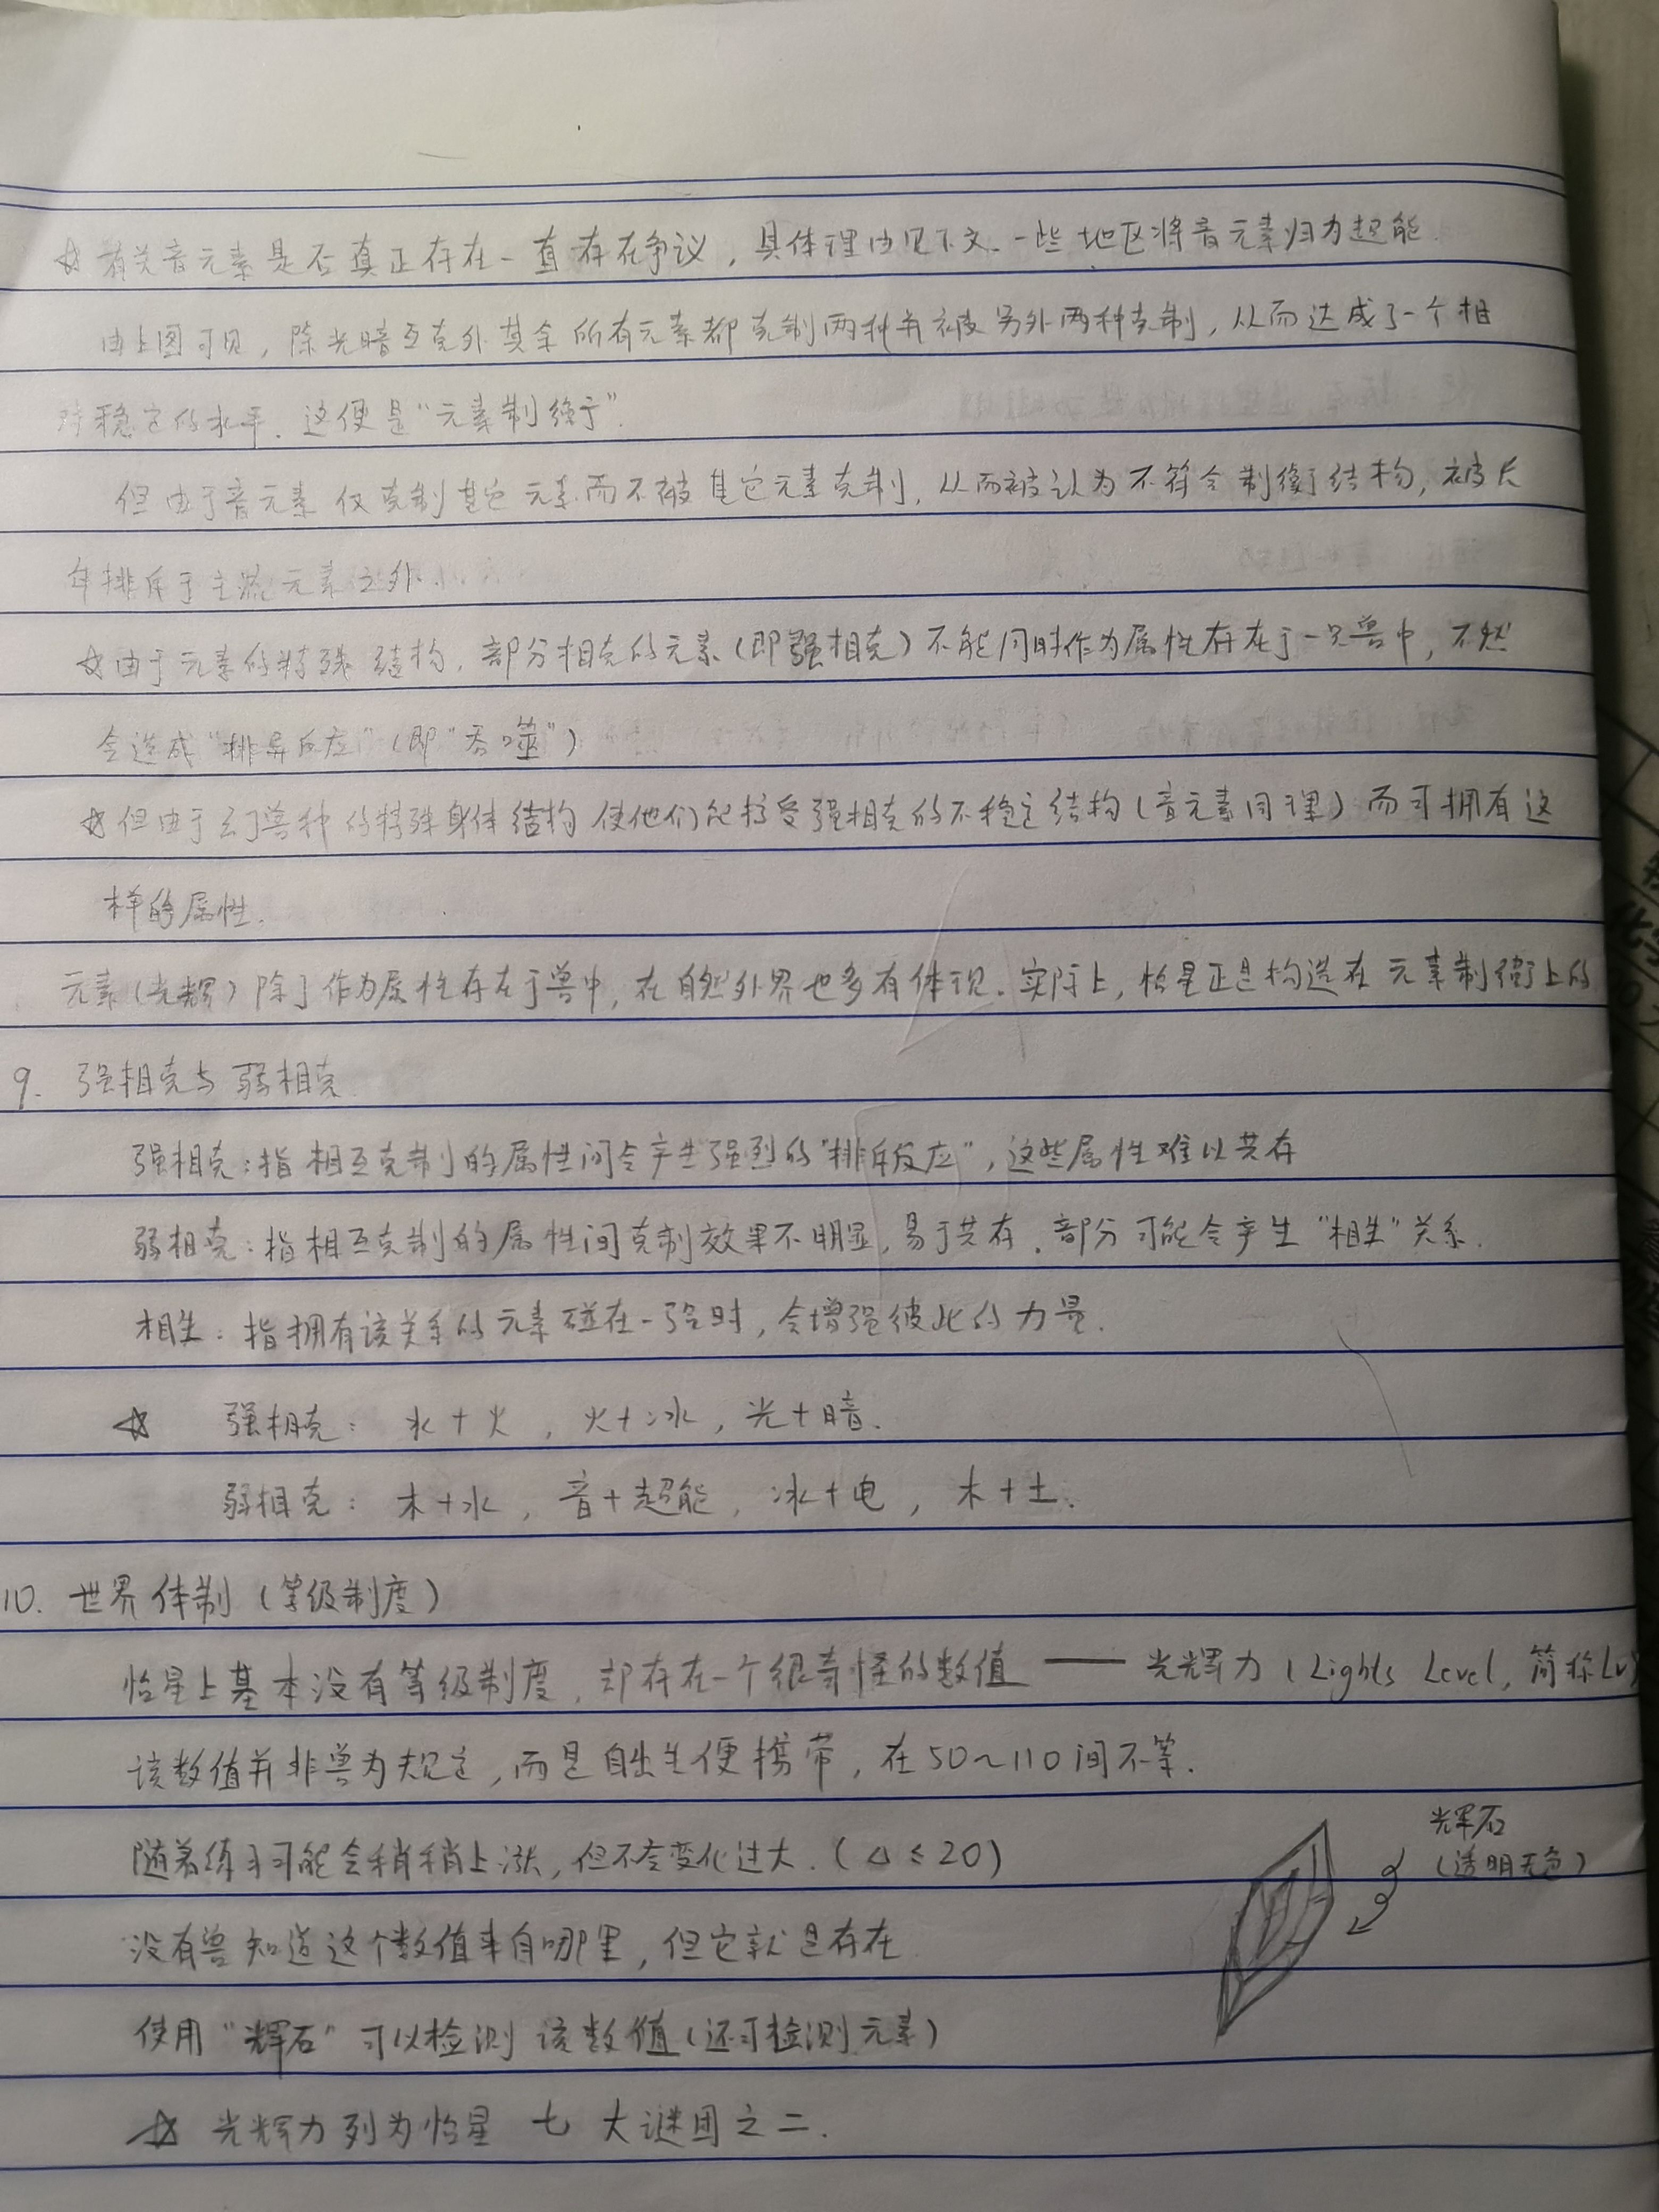 ☆ 有关音元素是否真正存在一直存在争议，具体理由见下文。一些地区将音元素归为超能。
由上图可见，除光暗互克外其余所有元素都克制两种并被另外两种克制，从而达成了一个相
对稳定的水平。这便是“元素制衡”。
但由于音元素仅克制其它元素而不被其它元素克制，从而被认为不符合制衡结构，被长
年排斥于主流元素之外。
☆由于元素的特殊结构，部分相克的元素（即强相克）不能同时作为属性存在于一只兽中，不然
会造成“排异反应”（即“吞噬”）
☆但由于幻兽种的特殊身体结构使他们能接受强相克的不稳定结构（音元素同理）而可拥有这
样的属性。
元素（光辉）除了作为属性存在于兽中，在自然外界也多有体现。实际上，怡星正是构造在元素制衡上的
9. 强相克与弱相克
强相克：指相互克制的属性间会产生强烈的“排斥反应”，这些属性难以共存
弱相克：指相互克制的属性间克制效果不明显，易于共存。部分可能会产生“相生”关系。
相生：指拥有该关系的元素碰在一起时，会增强彼此的力量。
☆ 强相克： 水+火，火+冰，光+暗。
弱相克： 木+水，音+超能，冰+电，木+土。
10. 世界体制（等级制度）
怡星上基本没有等级制度，却存在一个很奇怪的数值——光辉力（Lights Level，简称Lv）
该数值并非兽为规定，而是自出生便携带，在50~110间不等。
随着练习可能会稍稍上涨，但不会变化过大。（△≤20）
光辉石
（透明无色）
没有兽知道这个数值来自哪里，但它就是存在
使用“辉石”可以检测该数值（还可检测元素）
☆ 光辉力列为怡星七大谜团之二．